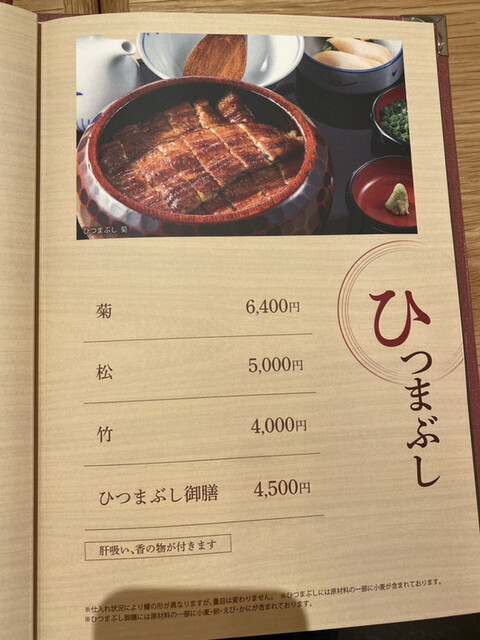 ひつまぶし 菊
ひつまぶし
菊 6,400円
松 5,000円
竹 4,000円
ひつまぶし御膳 4,500円
肝吸い、香の物が付きます
※仕入れ状況により鰻の形が異なりますが、量目は変わりません。 ※ひつまぶしには原材料の一部に小麦が含まれております。
※ひつまぶし御膳には原材料の一部に小麦・卵・えび・かにが含まれております。